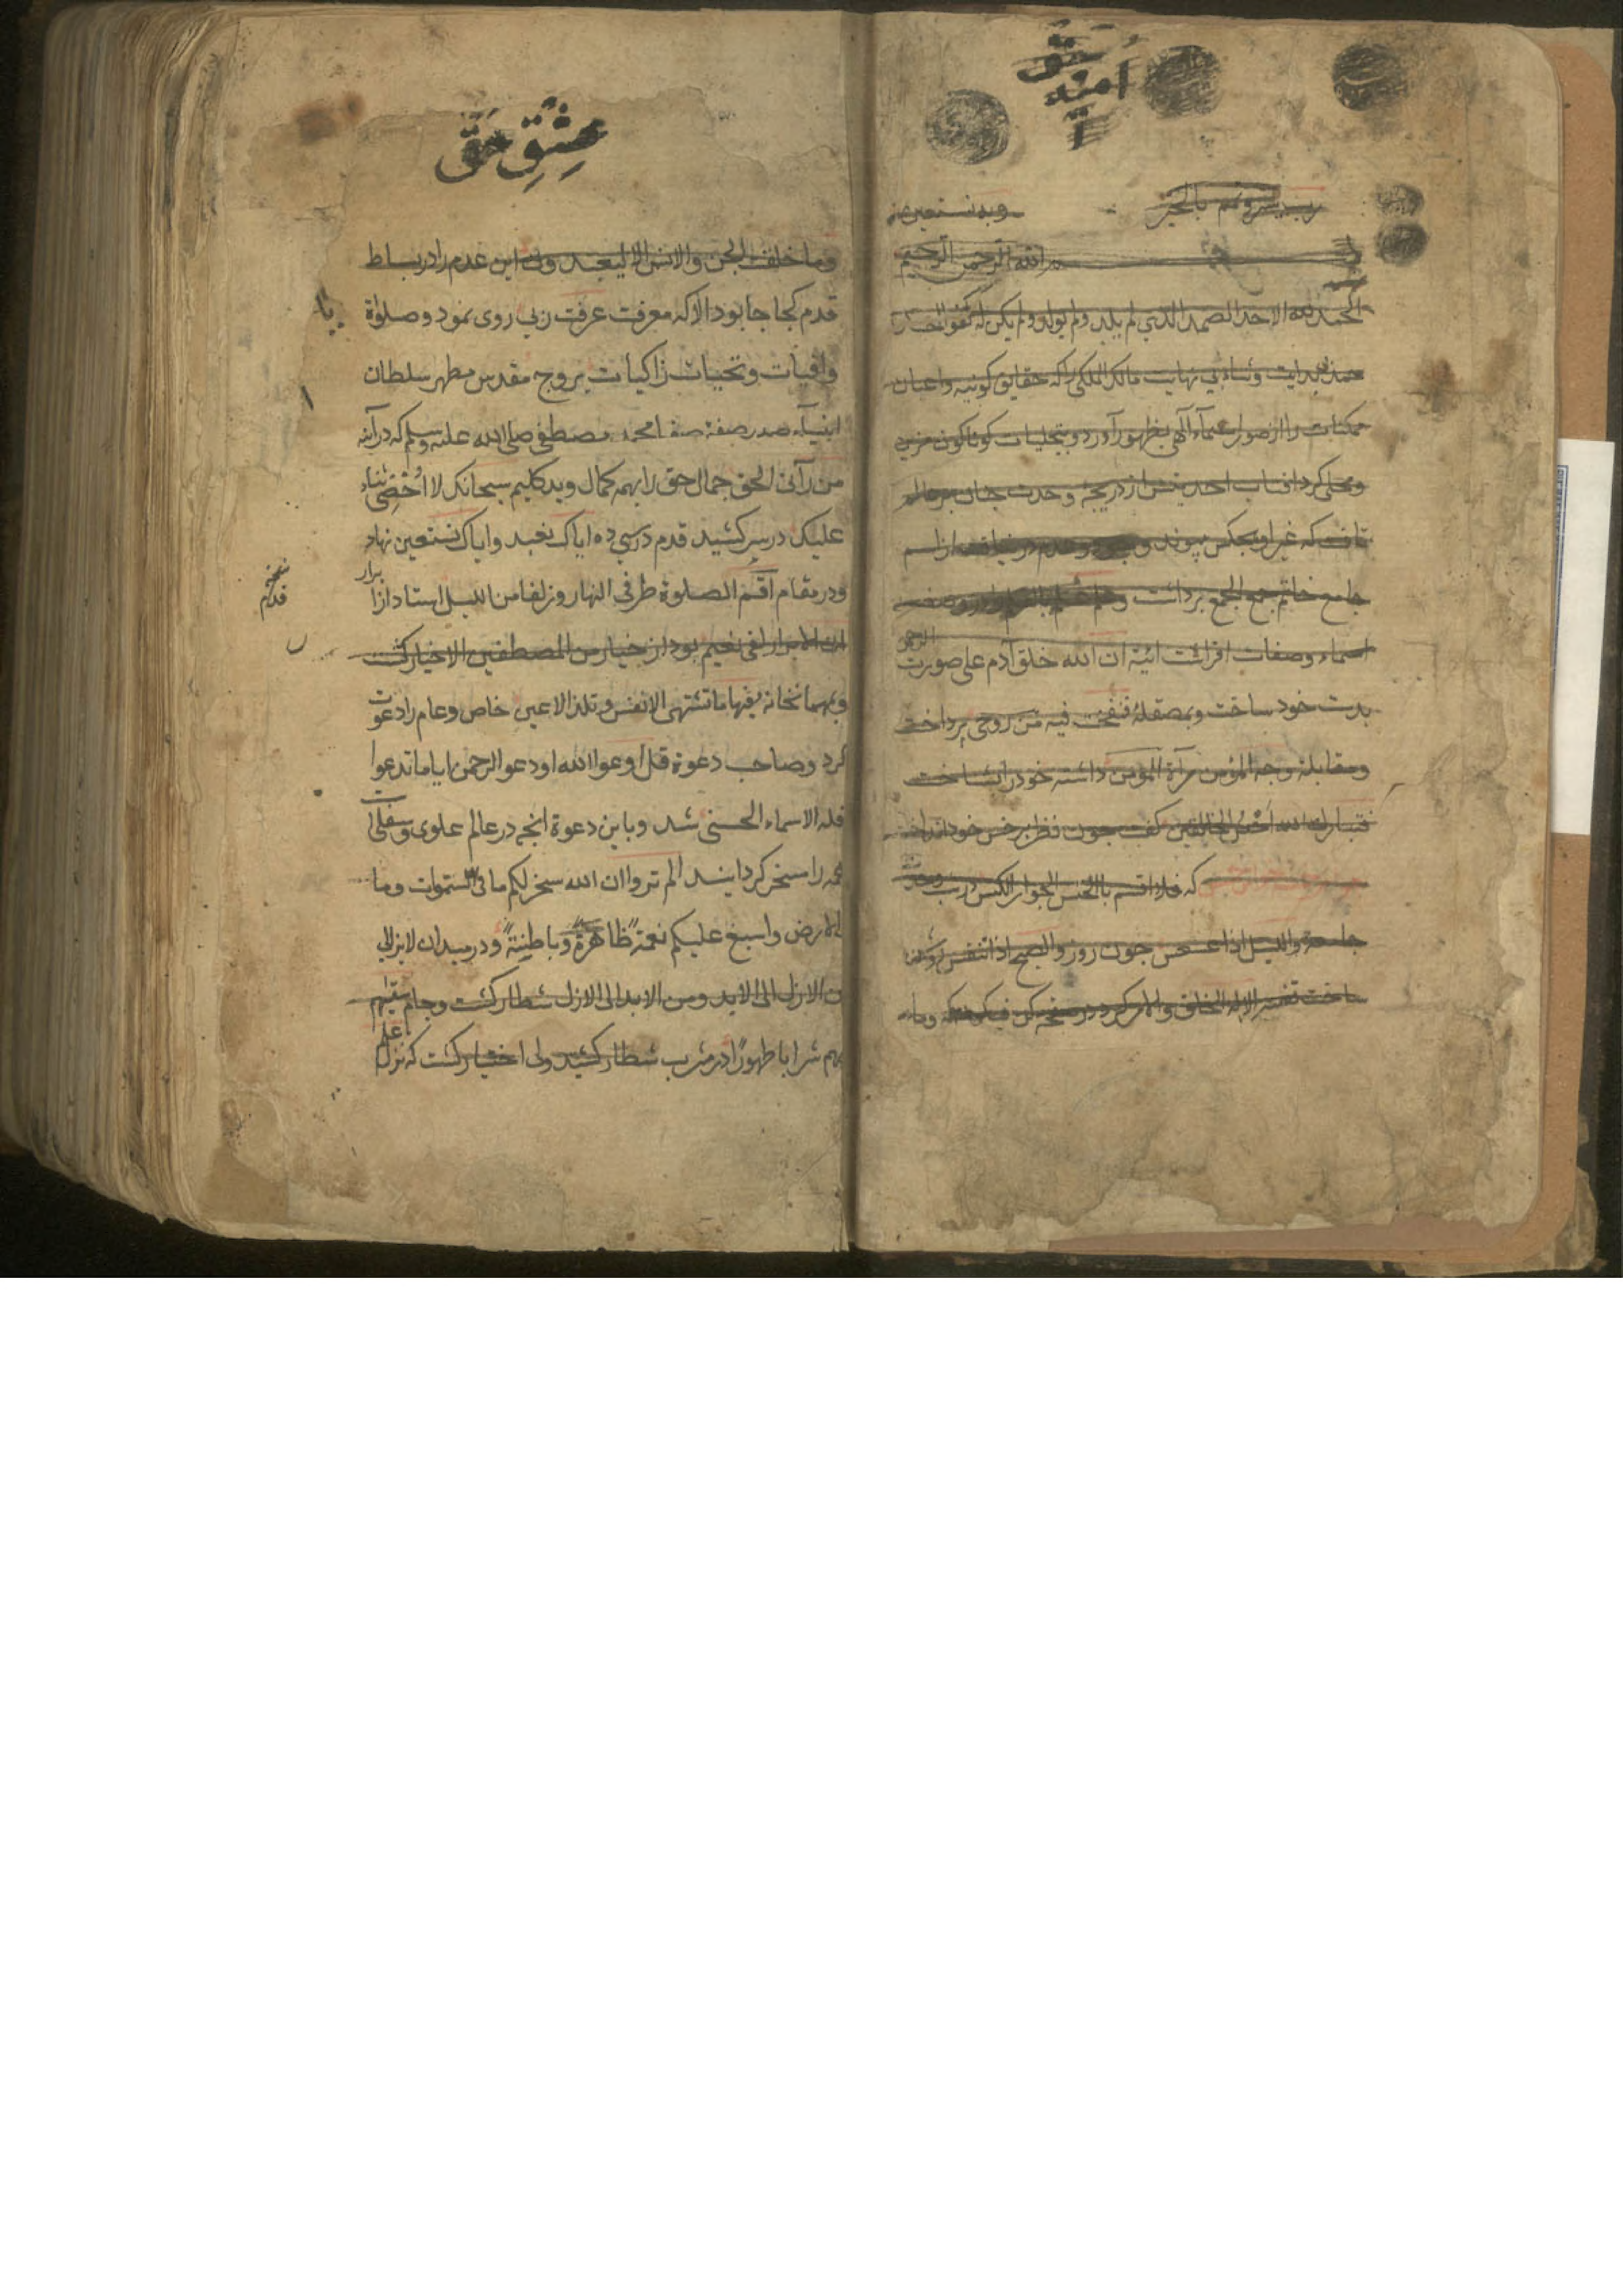 حق
امنه
رب يسر و تمم بالخير وبه نستعين
الله الرحمن الرحيم
الحمد لله الاحد الصمد الذي لم يلد ولم يولد ولم يكن له كفوا احد
حمد بی بدایت و ثناء بی نهایت مالک الملکی را که حقایق کونیه و اعیان
ممکنات را از صور اسماء الهی بظهور آورد و بتجلیات کوناکون مزین
ومحلی کرد افتاب احدیتش از دریچه وحدت چنان بر عالم
تافت که غیر او بچکس پیوند عدم در نیافت از اسم
جامع خاتم جمع الجمع برداشت و
اسماء وصفات افراشت ائینه ان الله خلق آدم علی صورت الرحمن
بدست خود ساخت وبمصقلهٔ فنفخت فیه من روحی پرداخت
ومقابلهٔ وجه المؤمن مرآة المؤمن داشته خود را بشناخت
فتبارك الله احسن الخالقین کفت چون نظر بر حسن خود انداخت
که فلا اقسم بالخنس الجوار الکنس در شب وحدت
جامعه واللیل اذا عسعس چون روز والصبح اذا تنفس روشن
ساخت تفسیر الا له الخلق والامر کرد در صفحه کن فیکون که وما
عِشْقِ حَقّ
وما خلقت الجن والانس الا لیعبدون این عدم را در بساط
قدم کجا جا بود الا که معرفت عرفت ربی بربی روی نمود وصلوٰة
وافیات وتحیات زاکیات بروح مقدس مطهر سلطان
انبیآء صدر صفهٔ صفا محمد مصطفی صلی الله علیه وسلم که در آئنه
من رآنی الحق جمال حق را بهمه کمال وید کلیم سبحانك لا اُحْصِی ثناء
علیك در سر کشید قدم در سی ده ایاك نعبد وایاك نستعین نهاد
ودر مقام اقم الصلوة طرفی النهار وزلفا من اللیل استاد ازا برار
ان الابرار لفی نعیم بود از خیار من المصطفین الاخیار کشت
وبمهمانخانه فیها ما تشتهی الانفس وتلذ الاعین خاص وعام را دعوت
کرد وصاحب دعوة قل ادعوا الله او دعو الرحمن ایا ما تدعوا
فله الاسماء الحسنی شد وباین دعوة انچه در عالم علوی وسفلی است
همه را مسخر کردانید الم تروا ان الله سخر لکم ما فی السموات وما
الارض واسبغ علیکم نعمهً ظاهرةً وباطِنةً ودر میدان لا یزالی
من الازل الی الابد ومن الابد الی الازل شطار کشت وجام سقیهم
بهم شرابا طهورًا در مشرب شطار کشید ولی اختیار کشت که نزل علی
نسخه
قدم